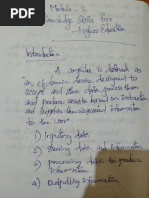 Module - 2
Knowledge Skills for
Higher Education
Introduction
A computer is defined as
an electronic device designed to
accept and store data, process them
and produce results based on instruction
and the information
to the user
1) Inputting data
2) Storing data and information
3) processing data to produce
information
4) Outputting information